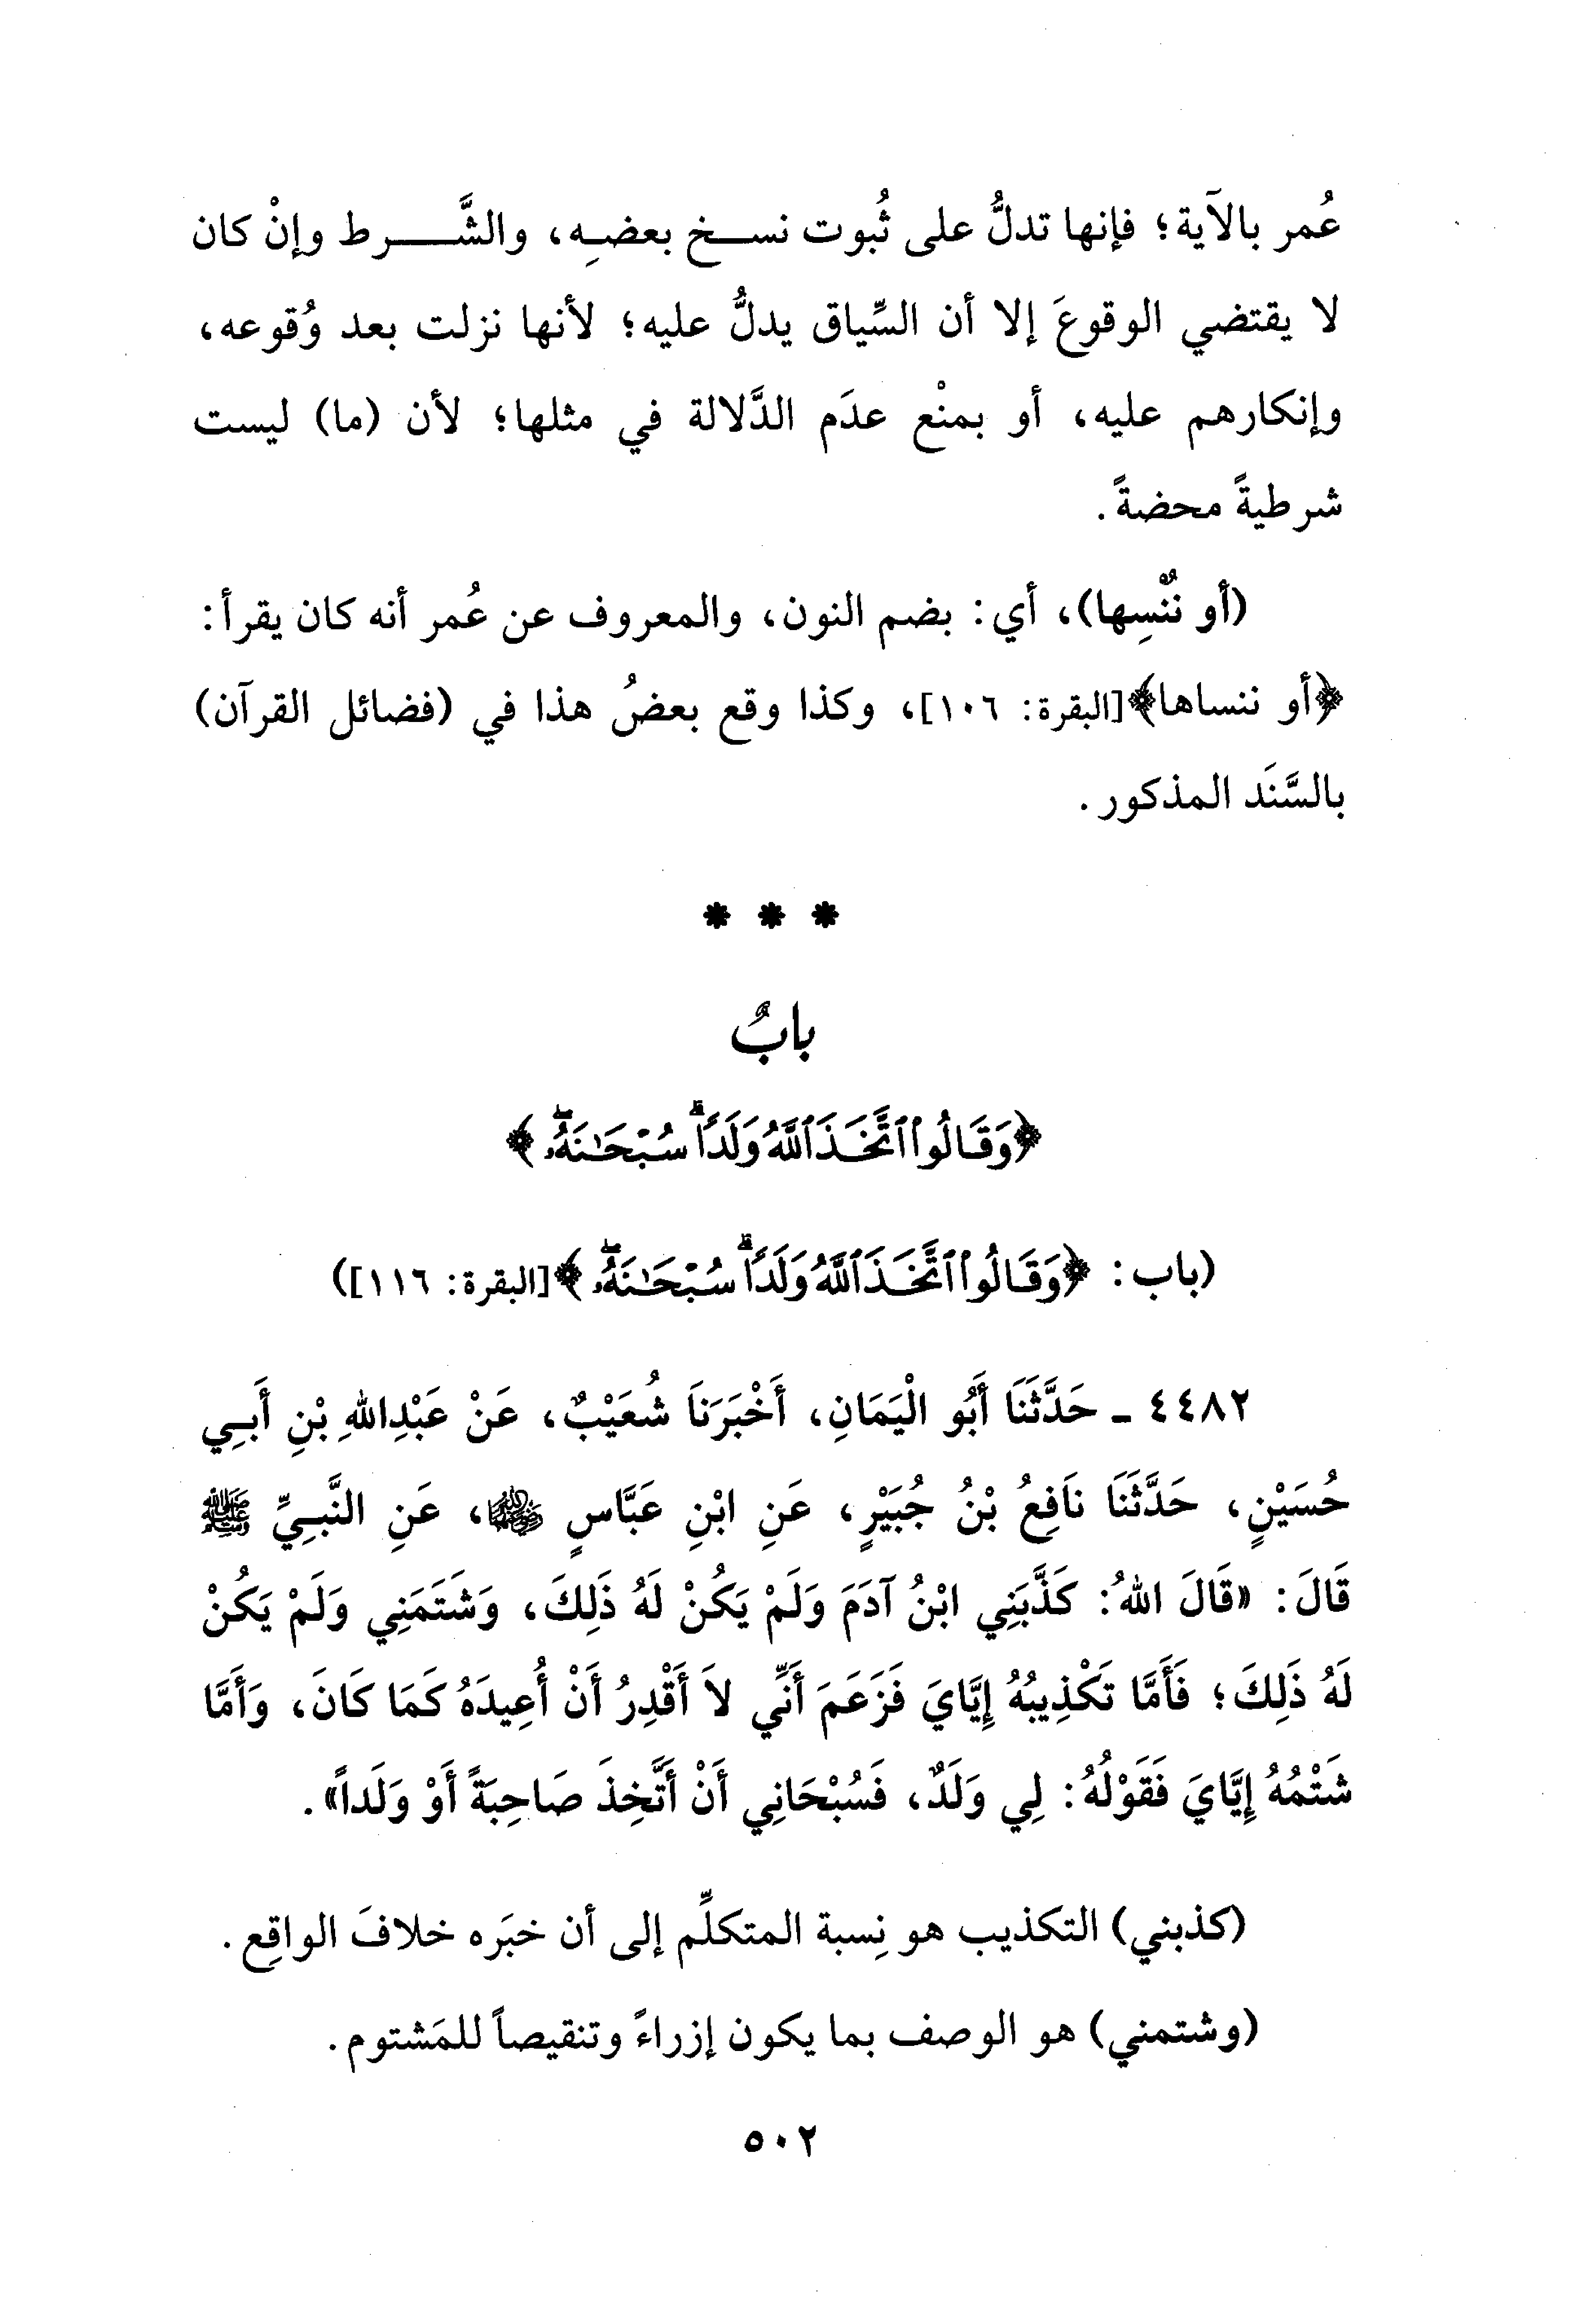 عُمر بالآية؛ فإنها تدلُّ على ثُبوت نسـخ بعضـِه، والشَّـرط وإنْ كان
لا يقتضي الوقوعَ إلا أن السِّياق يدلُّ عليه؛ لأنها نزلت بعد وُقوعه،
وإنكارهم عليه، أو بمنْع عدَم الدَّلالة في مثلها؛ لأن (ما) ليست
شرطيةً محضةً.
(أو نُنْسِها)، أي: بضم النون، والمعروف عن عُمر أنه كان يقرأ:
﴿أو ننساها﴾[البقرة: ١٠٦]، وكذا وقع بعضُ هذا في (فضائل القرآن)
بالسَّنَد المذكور.
* * *
بابٌ
﴿وَقَالُوا۟ ٱتَّخَذَ ٱللَّهُ وَلَدًا ۗ سُبْحَـٰنَهُۥ ۖ﴾
(باب: ﴿وَقَالُوا۟ ٱتَّخَذَ ٱللَّهُ وَلَدًا ۗ سُبْحَـٰنَهُۥ ۖ﴾[البقرة: ١١٦])
٤٤٨٢ ـ حَدَّثَنَا أَبُو الْيَمَانِ، أَخْبَرَنَا شُعَيْبٌ، عَنْ عَبْدِاللهِ بْنِ أَبـِي
حُسَيْنٍ، حَدَّثَنَا نَافِعُ بْنُ جُبَيْرٍ، عَنِ ابْنِ عَبَّاسٍ ﵄، عَنِ النَّبـِيِّ ﷺ
قَالَ: «قَالَ اللهُ: كَذَّبَنِي ابْنُ آدَمَ وَلَمْ يَكُنْ لَهُ ذَلِكَ، وَشَتَمَنِي وَلَمْ يَكُنْ
لَهُ ذَلِكَ؛ فَأَمَّا تَكْذِيبُهُ إِيَّايَ فَزَعَمَ أَنِّي لاَ أَقْدِرُ أَنْ أُعِيدَهُ كَمَا كَانَ، وَأَمَّا
شَتْمُهُ إِيَّايَ فَقَوْلُهُ: لِي وَلَدٌ، فَسُبْحَانِي أَنْ أَتَّخِذَ صَاحِبَةً أَوْ وَلَداً».
(كذبني) التكذيب هو نِسبة المتكلِّم إلى أن خبَره خلافَ الواقِع.
(وشتمني) هو الوصف بما يكون إزراءً وتنقيصاً للمَشتوم.
٥٠٢